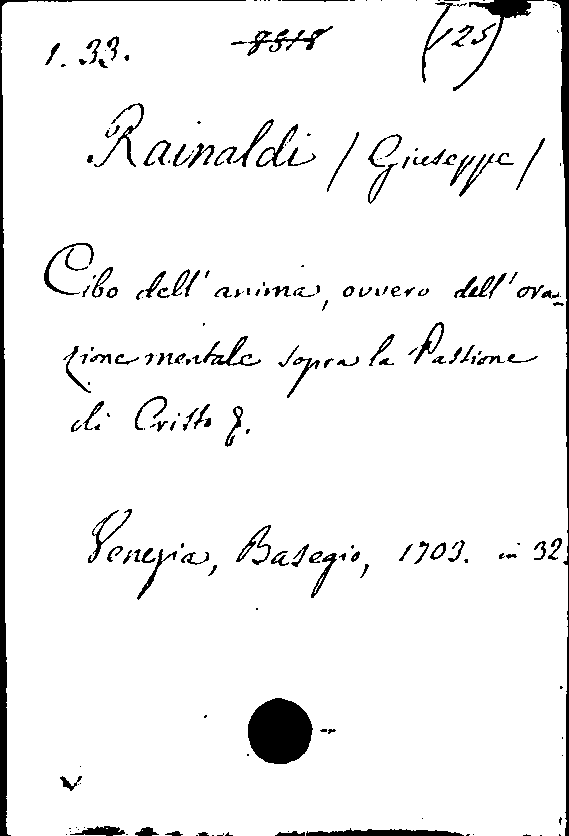 1. 33. 8318 (125)
Rainaldi / Giuseppe /
Cibo dell' anima, ovvero dell' ora-
zione mentale sopra la Passione
di Cristo &.
Venezia, Basegio, 1703. in 32.